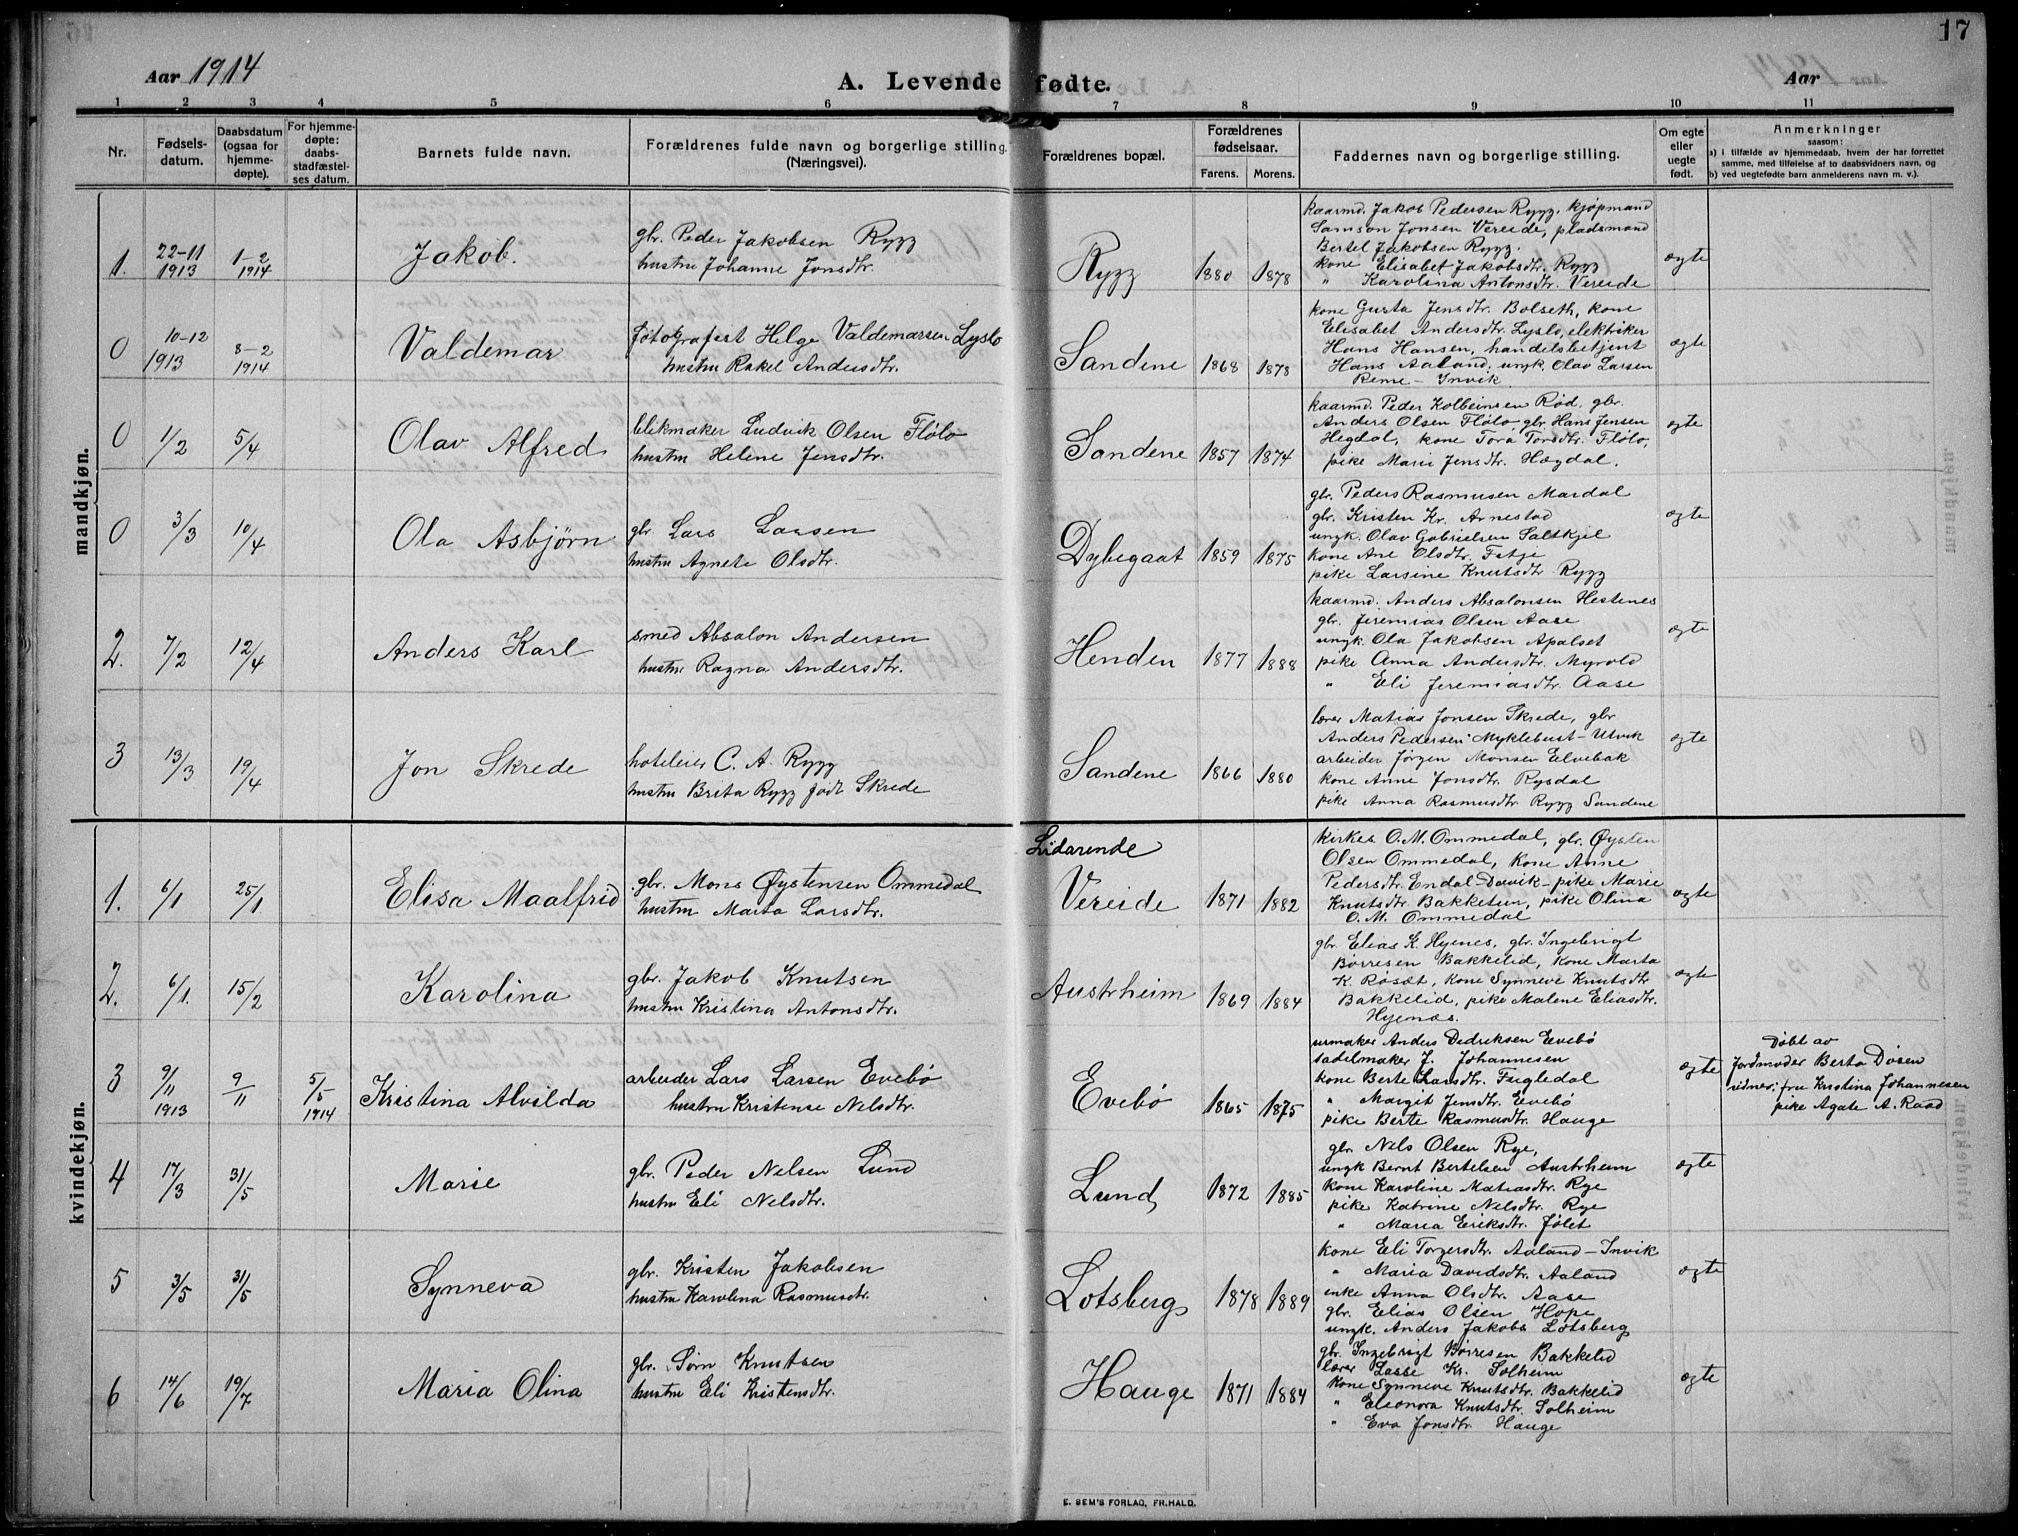 17
Aar 1914
A. Levende fødte.
Aar
1 2 3 4 5 6 7 8 9 10 11
Nr.
Fødsels-
datum.
Daabsdatum
(ogsaa for
hjemme-
døpte).
For hjemme-
døpte:
daabs-
stadfæstel-
ses datum.
Barnets fulde navn.
Forældrenes fulde navn og borgerlige stilling.
(Næringsvei).
Forældrenes bopæl.
Forældrenes
fødselsaar.
Farens. Morens.
Faddernes navn og borgerlige stilling.
Om egte
eller
uegte
født.
Anmerkninger
saasom:
a) i tilfælde av hjemmedaab, hvem der har forrettet
samme, med tilføielse af to daabsvidners navn, og
b) ved uegtefødte barn anmelderens navn m. v.).
mandkjøn.
1. 22-11 1913 1-2 1914 Jakob.
gbr. Peder Jakobsen Rygg
hustru Johanne Jonsdtr.
Rygg 1880 1878
kaarmd. Jakob Pedersen Rygg, kjøpmand
Samson Jonsen Vereide, pladsmand
Bertel Jakobsen Rygg.
kone Elisabet Jakobsdtr. Rygg
" Karolina Antonsdtr. Vereide
ægte
0 10-12 1913 8-2 1914 Valdemar
fotografest Helge Valdemarsen Lyslo
hustru Rakel Andersdtr.
Sandene 1868 1878
kone Gusta Jensdtr. Bolseth, kone
Elisabet Andersdtr. Lyslo, elektriker
Hans Hansen, handelsbetjent
Hans Aaland, ungk. Olav Larsen
Reme - Invik
ægte
0 1/2 5/4 Olav Alfred
blikmaker Ludvik Olsen FløLo
hustru Helene Jensdtr.
Sandene 1857 1874
kaarmd. Peder Kolbeinsen Rød, gbr.
Anders Olsen Flølo, gbr. Hans Jensen
Hegdal, kone Tora Tordtr. Flølo,
pike Marie Jensdtr. Hægdal.
ægte
0 3/3 10/4 Ola Asbjørn
gbr Lars Larsen
hustru Agnete Olsdtr.
Dybegaat 1859 1875
gbr. Peders Rasmusen Mardal
gbr. Kristen Kr. Arnestad
ungk. Olav Gabrielsen Saltkjel
kone Ane Olsdtr. Fitje
pike Larsine Knutsdtr Rygg
ægte
2. 7/2 12/4 Anders Karl
smed Absalon Andersen
hustru Ragna Andersdtr.
Henden 1877 1888
kaarmd. Anders Absalonsen Hestenes
gbr. Jeremias Olsen Aase
ungk Ola Jakobsen Apalset
pike Anna Andersdtr. Myrold
" Eli Jeremiasdtr. Aase
ægte
3 13/3 19/4 Jon Skrede
hoteleier C. A. Rygg
hustru Brita Rygg født Skrede
Sandene 1866 1880
lærer Matias Jonsen Skrede, gbr
Anders Pedersen Myklebust - Utvik
arbeider Jørgen Monsen Elvebak
kone Anne Jonsdtr. Rysdal
pike Anna Rasmusdtr. Rygg Sandene
ægte
kvindekjøn.
1. 6/1 25/1 Elisa Maalfrid
gbr. Mons Øystensen Ommedal
hustru Marta Larsdtr.
Lidarende
Vereide 1871 1882
kirkes. O. M. Ommedal, gbr. Øysten
Olsen Ommedal, kone Anne
Pedersdtr. Endal-Davik - pike Marie
Knutsdtr Bakketun, pike Olina
O. M. Ommedal
ægte
2. 6/1. 15/2 Karolina
gbr. Jakob Knutsen
hustru Kristina Antonsdtr.
Austrheim 1869 1884
gbr. Elias K. Hyenes, gbr. Ingebrigt
Børresen Bakkelid, kone Marta
K. Røsæt, kone Synneve Knutsdtr
Bakkelid, pike Malene Eliasdtr.
Hyenæs.
ægte
3 9/11 1913 9/11 5/5 1914 Kristina Alvilda
arbeider Lars Larsen Evebø
hustru Kristense Nilsdtr.
Evebø 1865 1875
urmaker Anders Dedriksen Evebø
sadelmaker J. Johannesen
kone Berte Larsdtr. Fugledal
" Margit Jensdtr. Evebø
pike Berte Rasmusdtr. Hauge
ægte
Døbt av
Jordmoder Berta Døsen
vidner: fru Kristina Johannesen
pike Agate A. Raad
4 17/3 31/5 Marie
gbr. Peder Nelsen Lund
hustru Eli Nelsdtr.
Lund 1872 1885
gbr. Nils Olsen Rye,
ungk Bernt Bertelsen Austrheim
kone Karoline Matiasdtr. Rye
pike Katrine Nelsdtr. Rye
" Maria Eriksdtr. Jølet
ægte
5 3/5 31/5 Synneva
gbr. Kristen Jakobsen
hustru Karolina Rasmusdtr.
Lotsberg 1878 1889
kone Eli Torgersdtr. Aaland - Invik
" Maria Davidsdtr. Aaland
enke Anna Olsdtr. Aase
gbr. Elias Olsen Hope
ungk. Anders Jakobs Lotsberg
ægte
6 14/6 19/7 Maria Olina
gbr. Sørn Knutsen
hustru Eli Kristensdtr.
Hauge 1871 1884
gbr. Ingebrigt Børresen Bakkelid
lærer Lasse Kr. Solheim
kone Synneve Knutsdtr. Bakkelid
" Eleonora Knutsdtr. Solheim
" Eva Jonsdtr. Hauge
ægte
E. SEM'S FORLAG, FR.HALD.